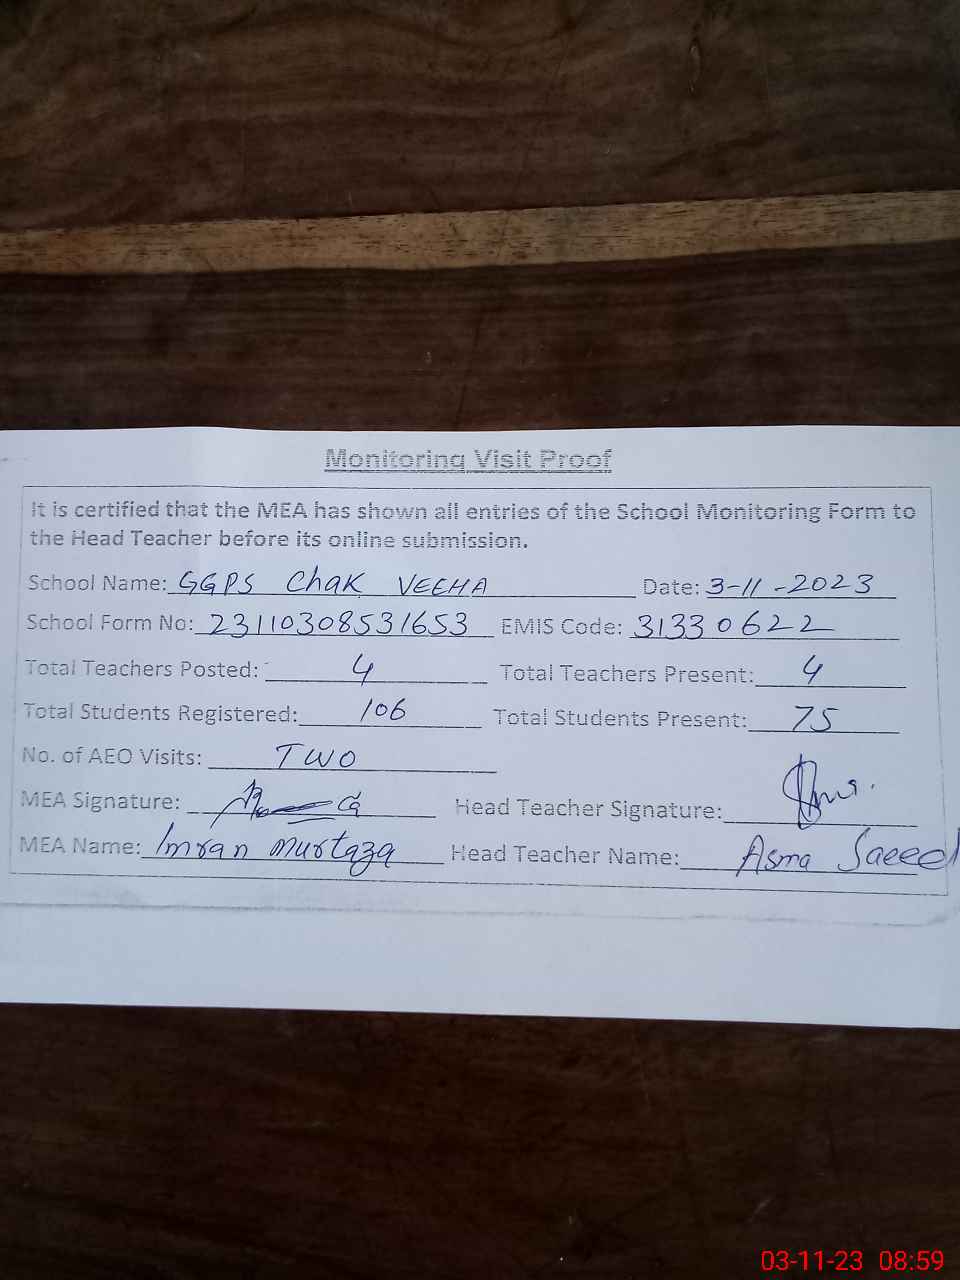 Monitoring Visit Proof
It is certified that the MEA has shown all entries of the School Monitoring Form to
the Head Teacher before its online submission.
School Name: GGPS Chak VEEHA Date: 3-11-2023
School Form No: 23110308531653 EMIS Code: 31330622
Total Teachers Posted: 4 Total Teachers Present: 4
Total Students Registered: 106 Total Students Present: 75
No. of AEO Visits: TWO
MEA Signature: Head Teacher Signature:
MEA Name: Imran Murtaza Head Teacher Name: Asma Saeed
03-11-23 08:59